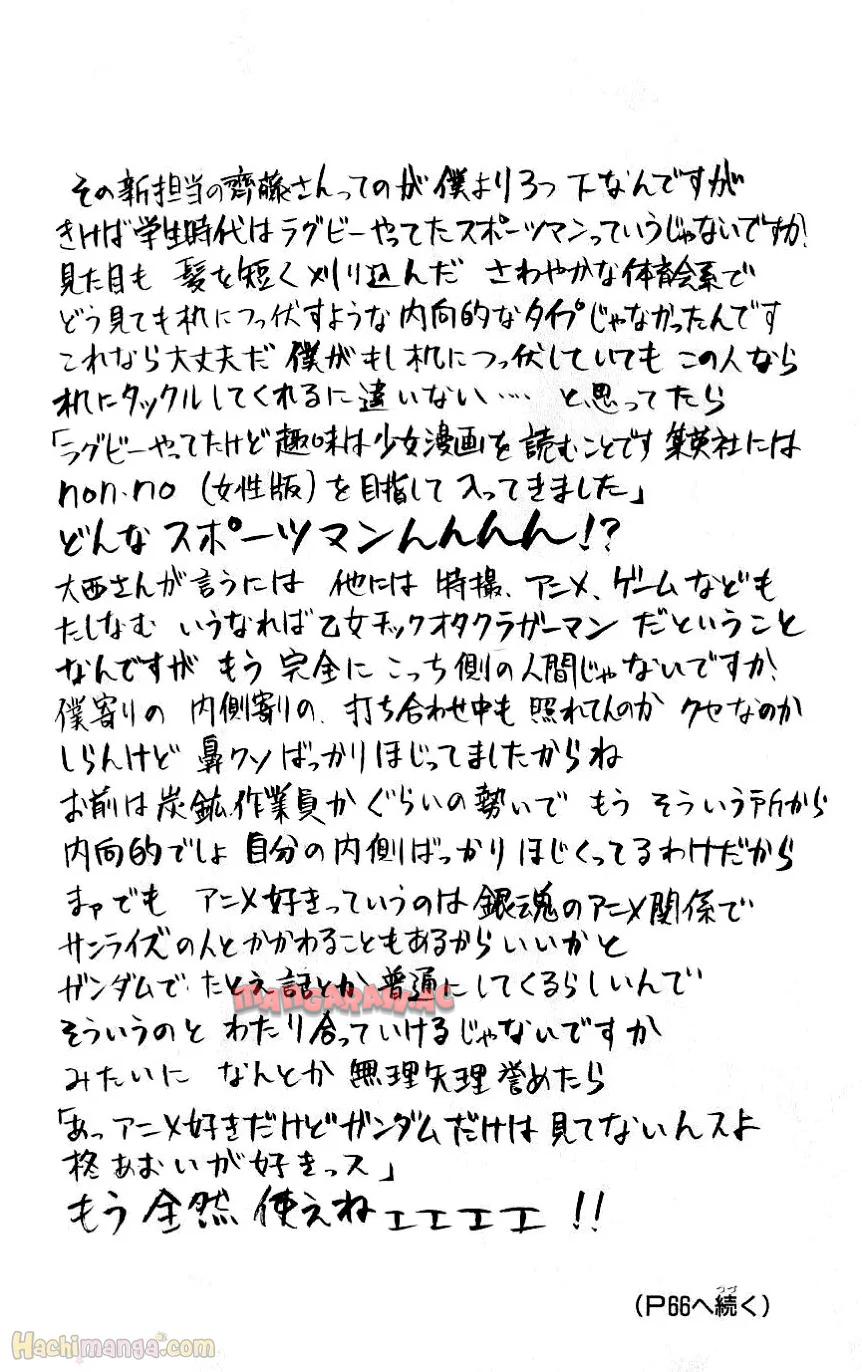 その新担当の齊藤さんってのが僕より3つ下なんですが
きけば学生時代はラグビーやってたスポーツマンっていうじゃないですか!
見た目も 髪を短く刈り込んだ さわやかな体育会系で
どう見ても机につっ伏すような内向的なタイプじゃなかったんです
これなら大丈夫だ 僕がもし机につっ伏していても この人なら
机にタックルしてくれるに違いない…. と思ってたら
「ラグビーやってたけど趣味は少女漫画を読むことです集英社には
non・no (女性版)を目指して入ってきました」
どんなスポーツマンんんんん!?
大西さんが言うには 他には 特撮、アニメ、ゲームなども
たしなむ いうなれば乙女チックオタクラガーマン だということ
なんですが もう 完全に こっち側の人間じゃないですか!
僕寄りの 内側寄りの、打ち合わせ中も 照れてんのか クセなのか
しらんけど 鼻クソばっかりほじってましたからね
お前は炭鉱作業員か ぐらいの勢いで もう そういう所から
内向的でしょ 自分の内側ばっかり ほじくってるわけだから
まァでも アニメ好きっていうのは銀魂のアニメ関係で
サンライズの人とかかわることもあるからいいかと
ガンダムで たとえ話とか 普通にしてくるらしいんで
そういうのと わたり合っていけるじゃないですか
みたいに なんとか 無理矢理 誉めたら
「あっアニメ好きだけどガンダムだけは 見てないんスよ
柊あおいが好きっス」
もう全然 使えねェェェェ!!
(P66へ続く)
つづ
MANGARAW.AC
Hachimanga.com